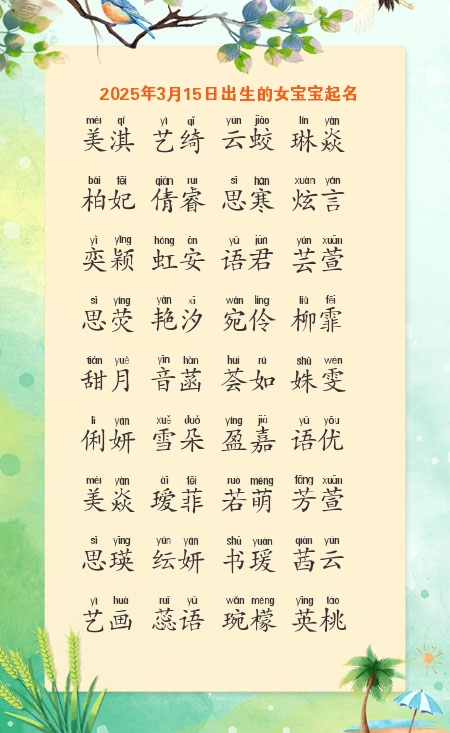 2025年3月15日出生的女宝宝起名
měi qí yì qǐ yún jiāo lín yàn
美淇 艺绮 云蛟 琳焱
bǎi fēi qiàn ruì sī hán xuàn yán
柏妃 倩睿 思寒 炫言
yì yǐng hóng ān yǔ jūn yún xuān
奕颖 虹安 语君 芸萱
sī yíng yàn xī wǎn líng liǔ fēi
思荧 艳汐 宛伶 柳霏
tián yuè yīn hàn huì rú shū wén
甜月 音菡 荟如 姝雯
lì yán xuě duǒ yíng jiā yǔ yōu
俐妍 雪朵 盈嘉 语优
měi yàn ài fēi ruò méng fāng xuān
美焱 瑷菲 若萌 芳萱
sī yīng yún yán shū yuàn qiàn yún
思瑛 纭妍 书瑗 茜云
yì huà ruǐ yǔ wǎn méng yīng táo
艺画 蕊语 琬檬 英桃